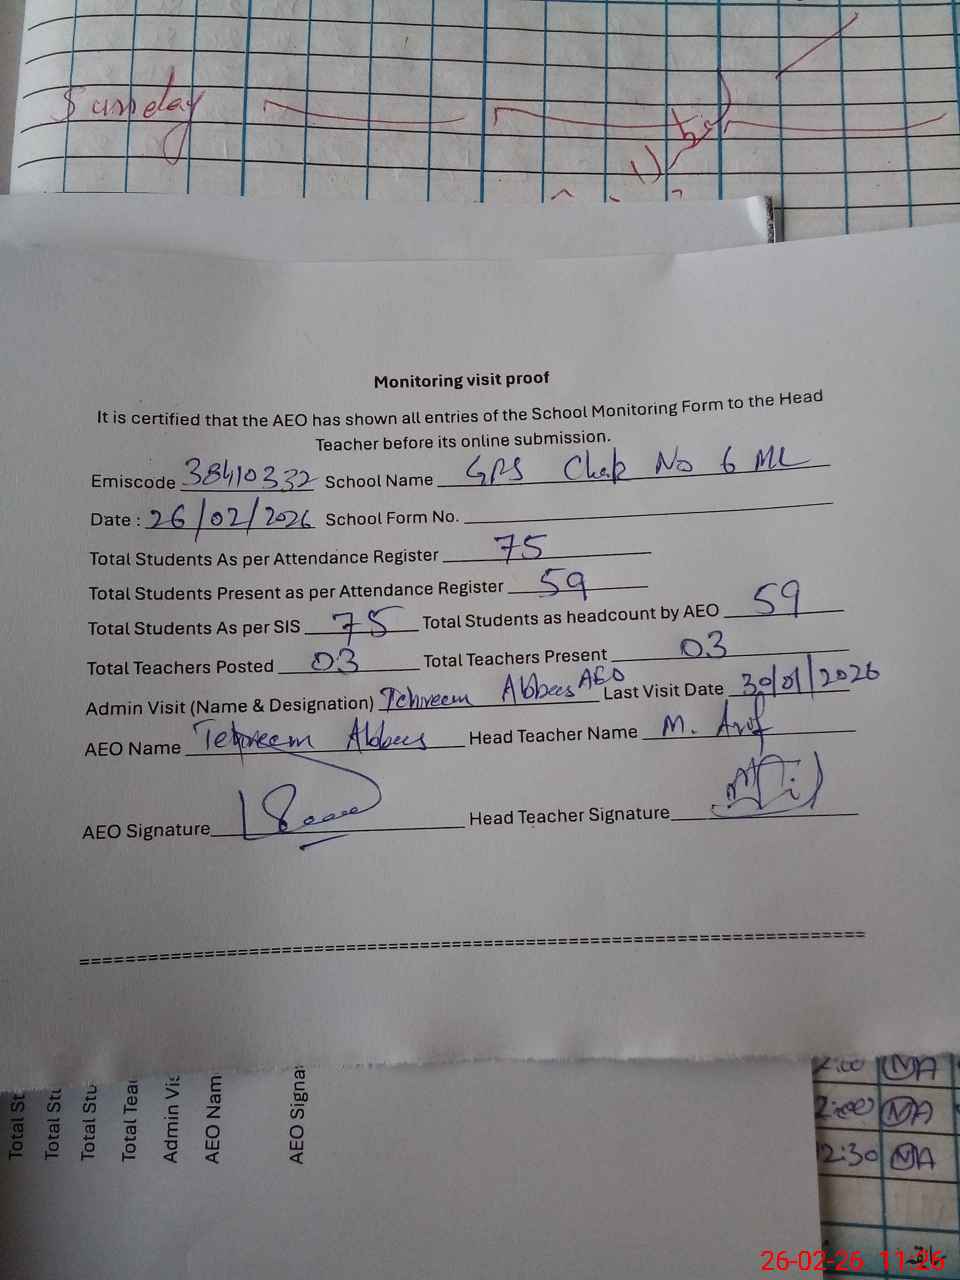 Sunday
Monitoring visit proof
It is certified that the AEO has shown all entries of the School Monitoring Form to the Head
Teacher before its online submission.
Emiscode 38410332 School Name GPS Chak No 6 ML
Date : 26/02/2026 School Form No.
Total Students As per Attendance Register 75
Total Students Present as per Attendance Register 59
Total Students As per SIS 75 Total Students as headcount by AEO 59
Total Teachers Posted 03 Total Teachers Present 03
Admin Visit (Name & Designation) Tehreem Abbas AEO Last Visit Date 30/01/2026
AEO Name Tehreem Abbas Head Teacher Name M. Arif
AEO Signature Head Teacher Signature
==========
Total St
Total Stu
Total Stu
Total Tea
Admin Vis
AEO Nam
AEO Signa
2:00 MA
2:00 MA
2:30 MA
26-02-26 11:26